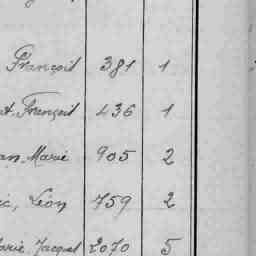 François 381 1
t, François 436 1
an Marie 905 2
ic, Léon 759 2
arie Jacques 2070 5